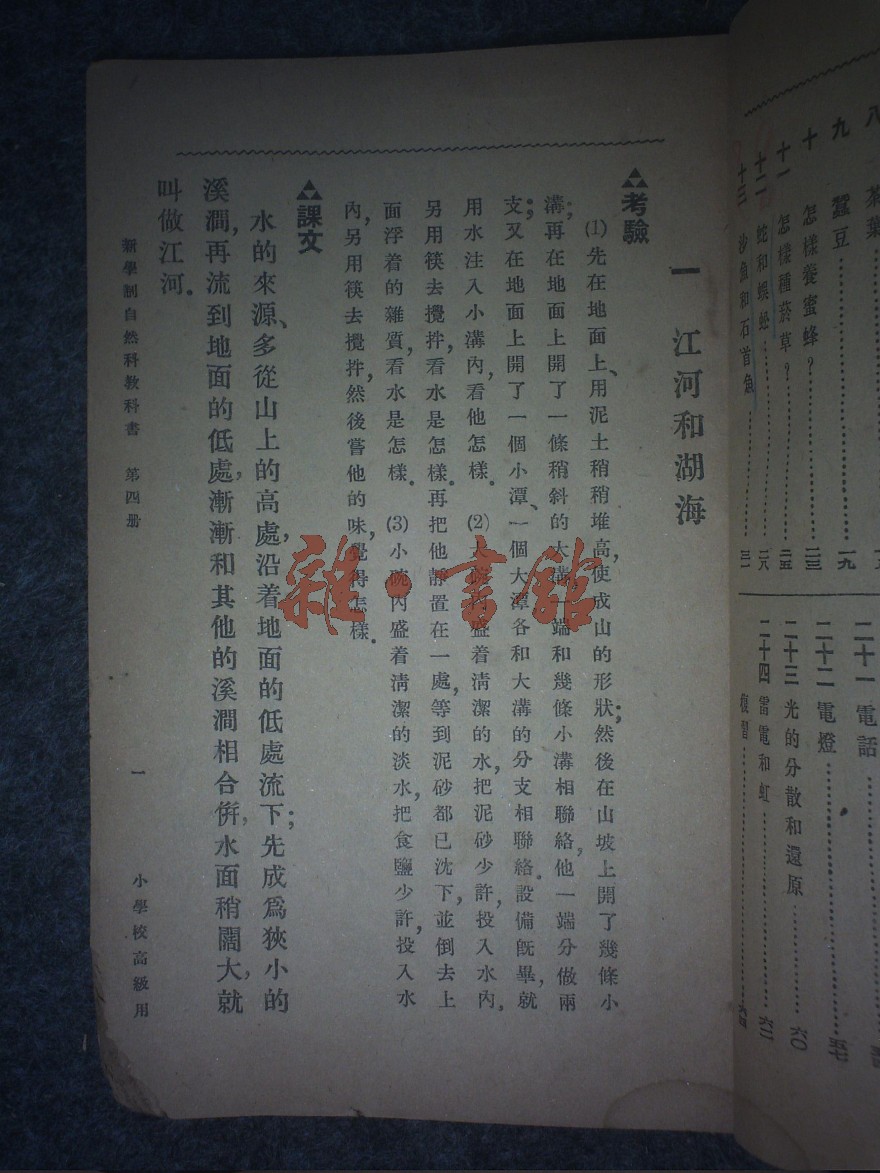 八 茶葉
九 蠶豆 一九
十 怎樣養蜜蜂？ 二三
十一 怎樣種菸草？ 二五
十二 蛇和蜈蚣 二八
十三 沙魚和石首魚 三一
二十一 電話
二十二 電燈 五七
二十三 光的分散和還原 六〇
二十四 雷電和虹 六二
復習
一 江河和湖海
考驗
(1)先在地面上、用泥土稍稍堆高，使成山的形狀；然後在山坡上開了幾條小
溝；再在地面上開了一條稍斜的大溝，一端和幾條小溝相聯絡，他一端分做兩
支；又在地面上開了一個小潭、一個大潭各和大溝的分支相聯絡。設備既畢，就
用水注入小溝內，看他怎樣。 (2)大碗內盛着清潔的水，把泥砂少許，投入水內，
另用筷去攪拌，看水是怎樣。再把他靜置在一處，等到泥砂都已沈下，並倒去上
面浮着的雜質，看水是怎樣。 (3)小碗內盛着清潔的淡水，把食鹽少許，投入水
內，另用筷去攪拌，然後嘗他的味，覺得怎樣。
課文
水的來源、多從山上的高處，沿着地面的低處流下；先成爲狹小的
溪澗，再流到地面的低處，漸漸和其他的溪澗相合併，水面稍闊大，就
叫做江河。
新學制自然科教科書 第四册 一 小學校高級用
雜·書館